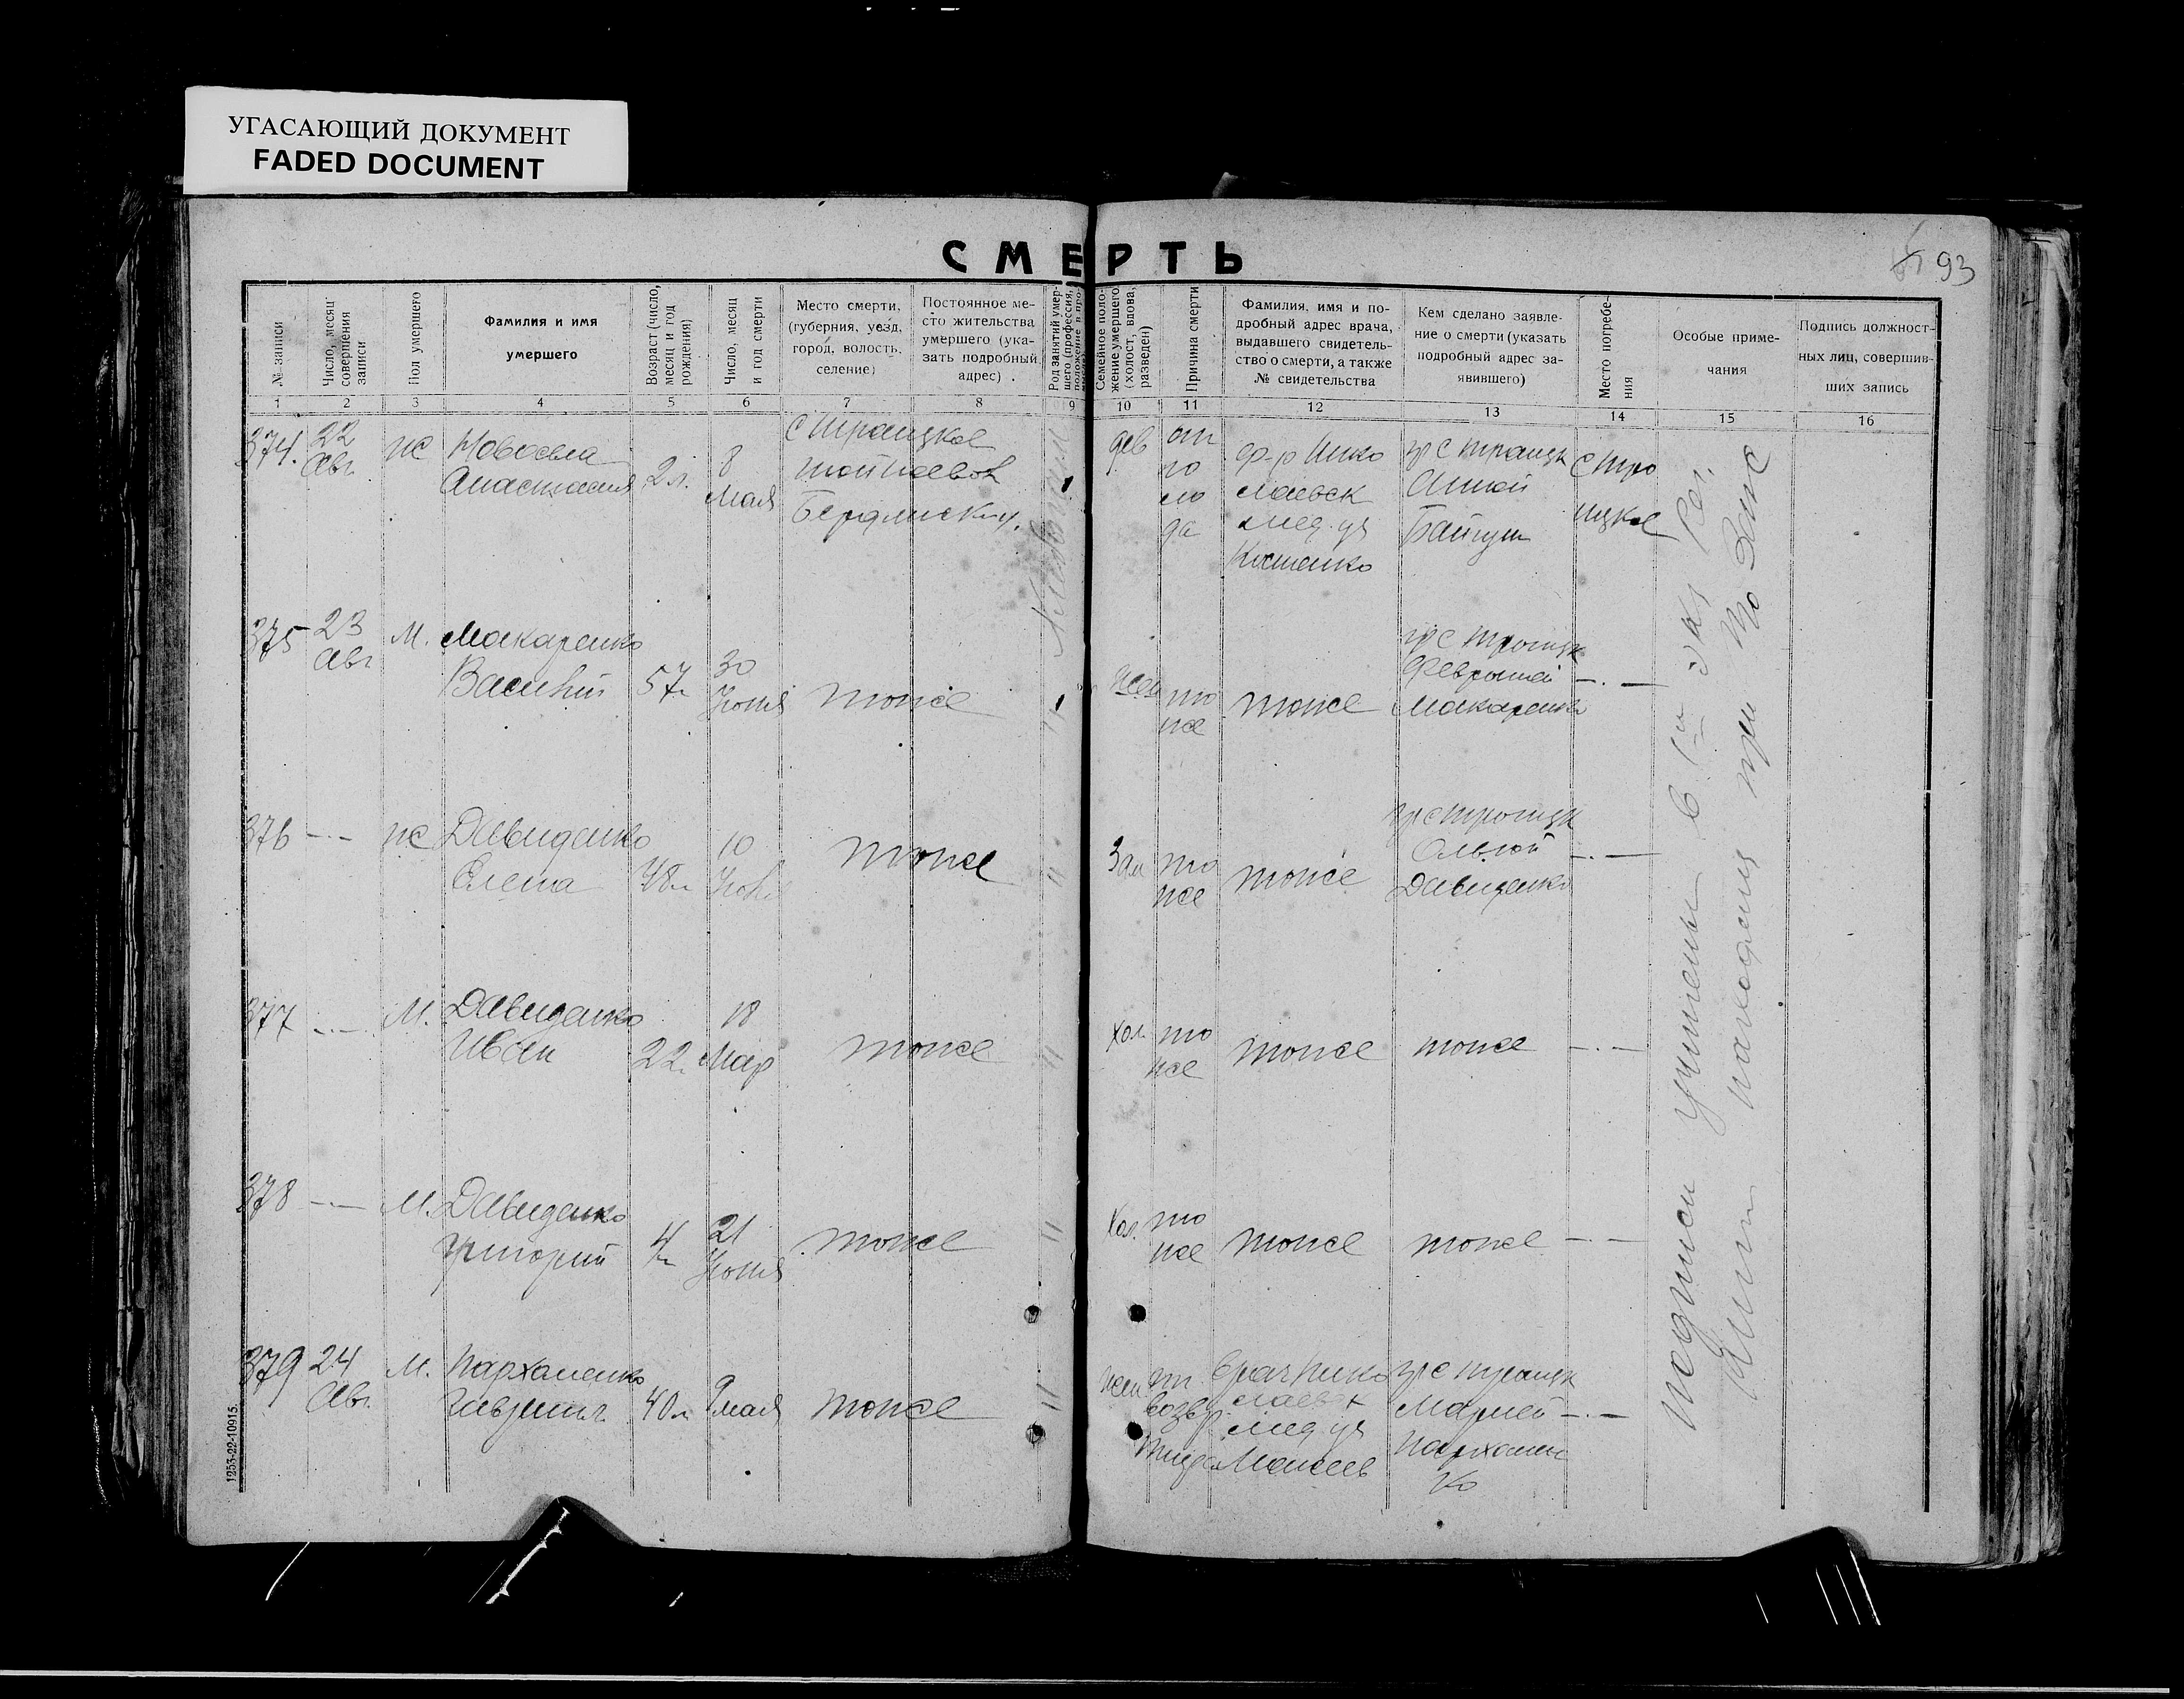 УГАСАЮЩИЙ ДОКУМЕНТ
FADED DOCUMENT
СМЕРТЬ
93
№ записи
Число, месяц совершения записи
Пол умершего
Фамилия и имя
умершего
Возраст (число, месяц и год рождения)
Число, месяц и год смерти
Место смерти,
(губерния, уезд,
город, волость,
селение)
Постоянное ме-
сто жительства
умершего (ука-
зать подробный
адрес)
Семейное поло-
жение умершего
(холост, вдова,
разведен)
Причина смерти
Фамилия, имя и по-
дробный адрес врача,
выдавшего свидетель-
ство о смерти, а также
№ свидетельства
Кем сделано заявле-
ние о смерти (указать
подробный адрес за-
явившего)
Место погребе-
ния
Особые приме-
чания
Подпись должност-
ных лиц, совершив-
ших запись
1 2 3 4 5 6 7 8 9 10 11 12 13 14 15 16
374.
22
Авг
ж
Анастасия
2 л.
8
Мая
с Троицкое
дев
от
го
ло
да
ф-р Нико
лаевск
мед. уч
Костенко
гр с Троицк
Анной
с Тро
ицкое
375
23
Авг
М.
Макаренко
Василий
57 л
30
Июня
тоже
жен
то
же
тоже
гр с Троицк
Макаренко
— . —
376
— . —
ж
Давиденко
Елена
48 л
10
тоже
"
Зам
то
же
тоже
гр с Троицк
Ольгой
Давиденко
— . —
377
— . —
М.
Давиденко
Иван
22 л
18
Мар
тоже
"
хол.
то
же
тоже
тоже
— . —
378
— . —
М.
Давиденко
Григорий
4 л
21
Июня
тоже
"
Хол.
то
же
тоже
тоже
— . —
379
24
Авг
М.
Пархоменко
Гавриил
40 л
9
мая
тоже
"
жен
возвр.
тифа
врач Нико
лаевск
мед. уч
Моисеев
гр с Троицк
Марией
Пархомен
ко
— . —
Подписи учинены в 1-м экз Рег.
Книги находящ при То Загс
1253-22-10915.